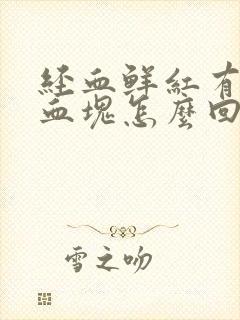 經血鮮紅有
血塊怎麼回
雪之吻